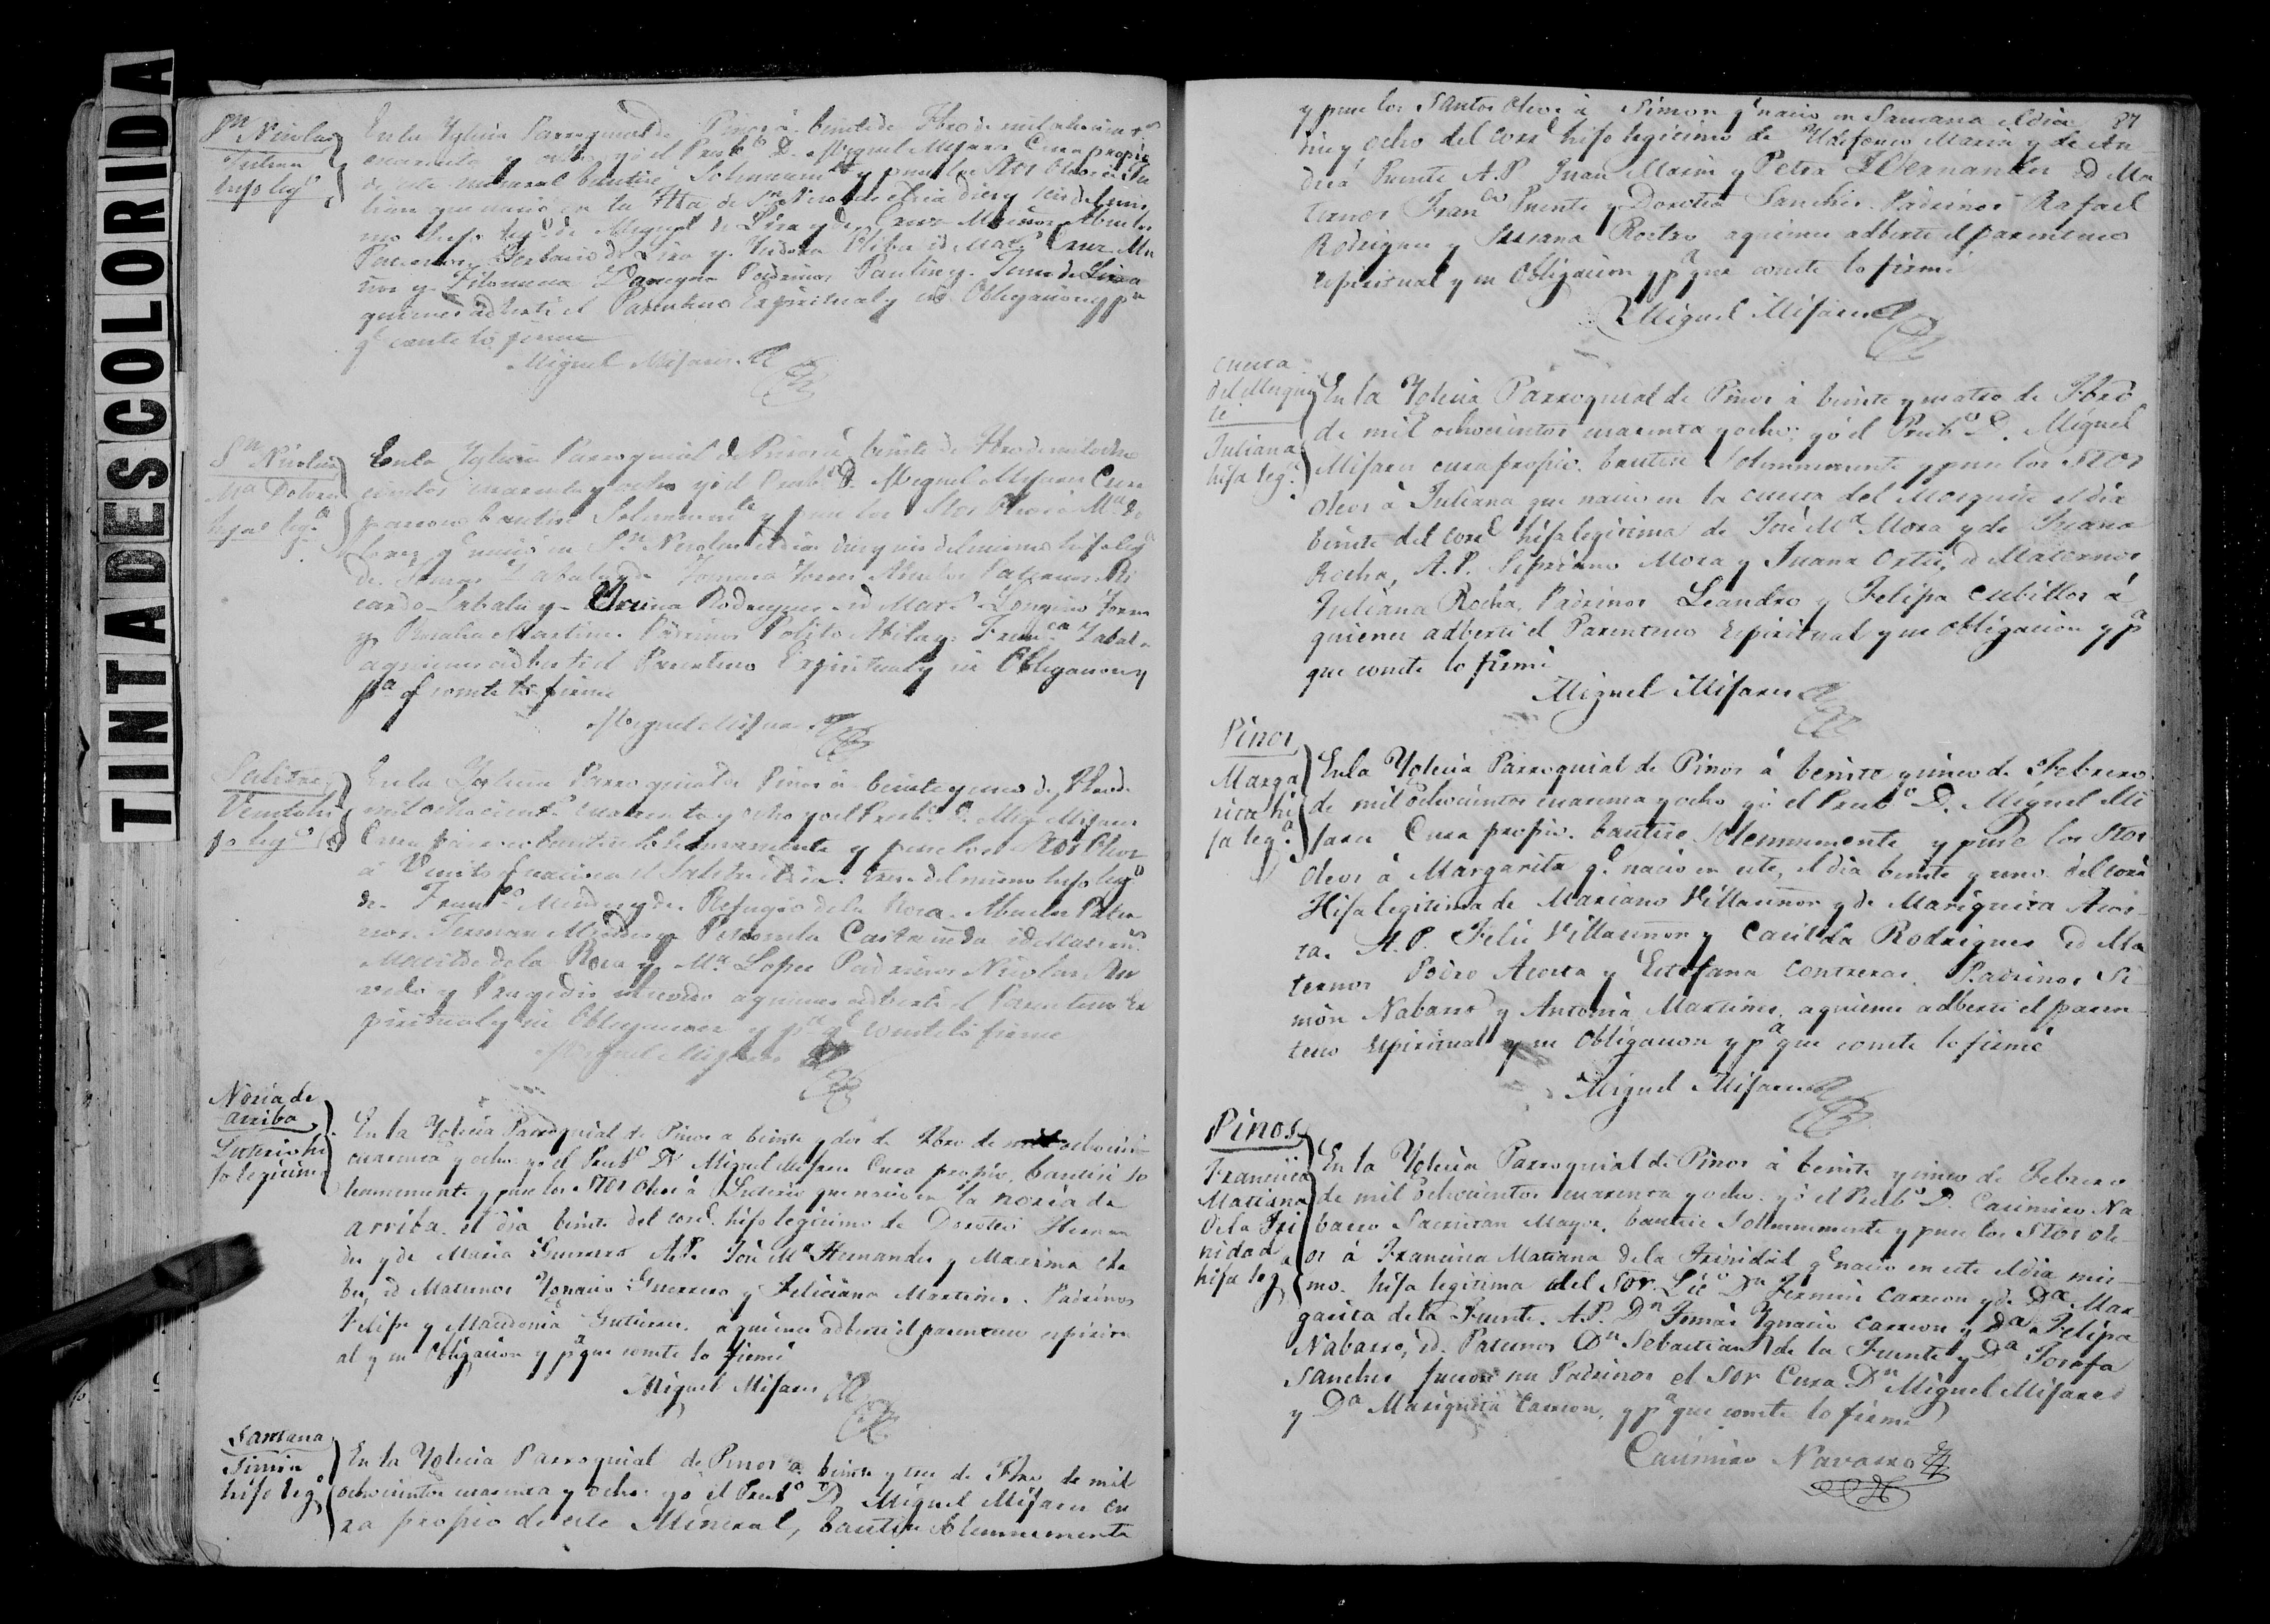 TINTA DESCOLORIDA
Sn Nicolas
Julian
hijo legmo
En la Yglecia Parroquial de Pinos à beinte de Fbro de mil ochocientos
cuarenta y ocho yó el Presbo D. Miguel Mijares Cura propio
de este mineral bautisé Solemnemte y puse los Stos Oleos à Ju
lian que nació en la Hda de Sn Nicolas el dia diez y seis del mis
mo hijo legmo de Miguel de Lira y de Cruz Muños Abuelos
Paternos Serbacio de Lira y Ysidora id Mats Cruz Mu
ños y Filomena Padrinos Faustino y Juana de Lira
quienes adberti el Parentesco Espiritual y su Obligacion y pa
qe conste lo firme
Miguel Mijares
Sn Nicolas
Ma Dolores
hija lega
En la Yglecia Parroquial de Pinos à beinte de Fbro de mil ocho
cientos cuarenta y ocho yó el Presbo D. Miguel Mijares Cura
parroco bautisé Solemnemte y puse los Stos Oleos à Ma Do
lores qe nació en Sn Nicolas el dia diez y seis del mismo hija lega
de Zabala y de Torres Abuelos Paternos Ri
cardo Zabala y Rodriguez id Mats Torres
y Rosalia Martines Padrinos Polito Abila y Franca Zabala
a quienes adberti el Parentesco Espiritual y su Obligacion y
pa qe conste lo firme
Miguel Mijares
Salitral
Venito hi
jo legmo
En la Yglecia Parroquial de Pinos à beinte y uno de Fbro de
mil ochocients cuarenta y ocho yo el Presbo D. Migl Mijares
Cura parroco bautisé Solemnemente y puse los Stos Oleos
à Venito qe nació en el Salitral el dia trese del mismo hijo legmo
de Franco Mendes y de Refugio de la Rosa Abuelos Pater
nos Mendes y Petronila Castañeda id Maternos
Matilde de la Rosa y Ma Lopes Padrinos Nicolas
y a quienes adberti el Parentesco Es
piritual y su Obligacion y pa qe conste lo firme
Miguel Mijares
Noria de
arriba
Leuterio hi
jo legitimo
En la Yglecia Parroquial de Pinos a beinte y dos de Fbro de mil ochocien
cuarenta y ocho yó el Presbo Dn Miguel Mijares Cura propio, bautisé so
lemnemente y puse los Stos Oleos à Leuterio que nació en la noria de
arriba el dia beinte del corte hijo legitimo de Doroteo Hernan
des y de Maria Guerrero A.P. José Ma Hernandes y Maxima Cha
bes, id Maternos Ygnacio Guerrero y Feliciana Martines. Padrinos
Felipe y Macedonia Gutierres. a quienes adberti el parentesco espiritu
al y su Obligacion y pa que conste lo firmé
Miguel Mijares
Santana
Simon
hijo lego
En la Yglecia Parroquial de Pinos a beinte y tres de Fbro de mil
ochocientos cuarenta y ocho yó el Presbo D. Miguel Mijares cu
ra propio de este Mineral, bautisé Solemnemente
87
y puse los Santos Oleos à Simon qe nació en Santana el dia
diez y ocho del corrte hijo legitimo de Yldefonso Marin y de An
drea Puente A.P. Juan Marin y Petra Hernandes id Ma
ternos Franco Puente y Dorotea Sanches. Padrinos Rafael
Rodrigues y Susana Rostro a quienes adberti el parentesco
espiritual y su Obligacion y pa que conste lo firmé
Miguel Mijares
Cueva
del Mesqui
te
Juliana
hija lega
En la Yglecia Parroquial de Pinos à beinte y cuatro de Fbro
de mil ochocientos cuarenta y ocho: yó el Presbo D. Miguel
Mijares cura propio. bautisé Solemnemente y puse los Stos
Oleos à Juliana que nacio en la cueva del Mesquite el dia
beinte del corte hija legitima de José Ma Mora y de Juana
Rocha, A.P. Sipriano Mora y Juana Ortis, id Maternos
Juliana Rocha, Padrinos Leandro y Felipa Cubillos á
quienes adberti el Parentesco Espiritual y su Obligacion y pa
que conste lo firmé
Miguel Mijares
Pinos
Marga
rita hi
ja lega
En la Yglecia Parroquial de Pinos á beinte y cinco de Febrero
de mil ochocientos cuarenta y ocho yó el Presbo D. Miguel Mi
jares Cura propio. bautisé Solemnemente y puse los Stos
Oleos à Margarita qe nació en este, el dia beinte y uno del corte
Hija legitima de Mariano Villaseñor y de Mariquita Acos
ta. A.P. Felis Villaseñor y Casilda Rodrigues id Ma
ternos Pedro Acosta y Estefana Contreras. Padrinos Si
mon Nabarro y Antonia Martines. a quienes adberti el paren
tesco espiritual y su Obligacion y pa que conste lo firmé
Miguel Mijares
Pinos
Francisca
Matiana
de la Tri
nidad
hija lega
En la Yglecia Parroquial de Pinos à beinte y cinco de Febrero
de mil ochocientos cuarenta y ocho. yó el Presbo D. Casimiro Na
barro Sacristan Mayor. bautisé Solemnemente y puse los Stos ole
os à Francisca Matiana de la Trinidad qe nacio en este el dia mis
mo. hija legitima del Sor. Lico Dn Fermin Carreon y de Da Mar
garita de la Fuente. A.P. Dn Tomás Ygnacio Carreon y Da Felipa
Nabarro, id. Paternos Dn Sebastian de la Fuente y Da Josefa
Sanches fueron sus Padrinos el Sor Cura Dn Miguel Mijares
y Da Mariquita Carreon, y pa que conste lo firmé
Casimiro Navarro